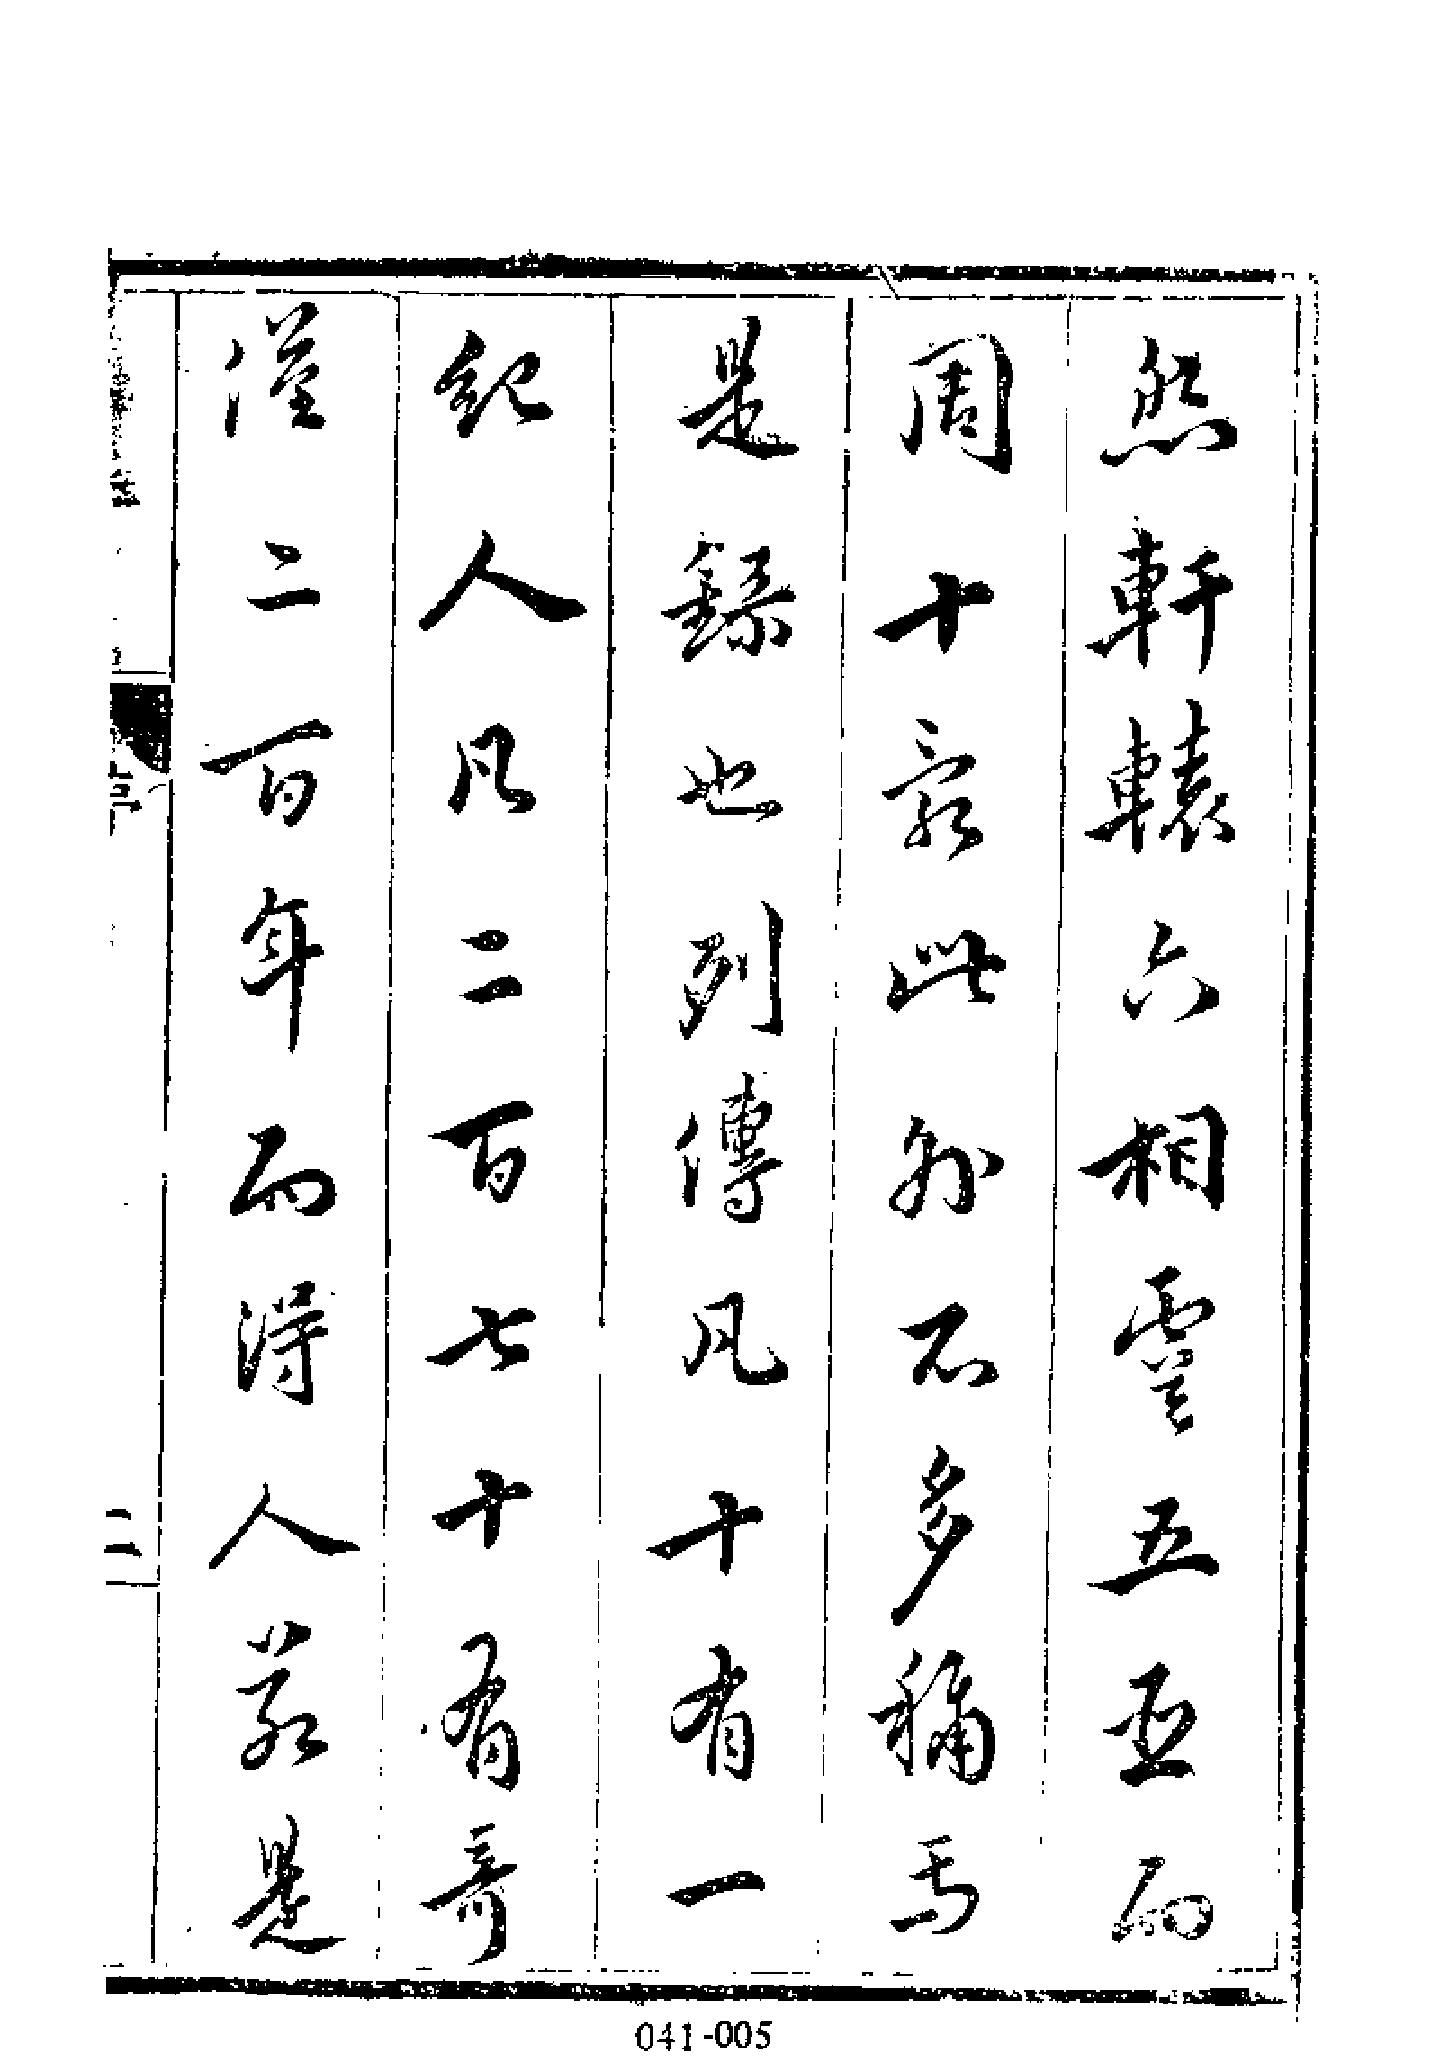 然軒轅六相虞五臣而
周十亂此外不多稱焉
是錄也列傳凡十有一
紀人凡二百七十有奇
僅二百年而得人若是
二
041-005